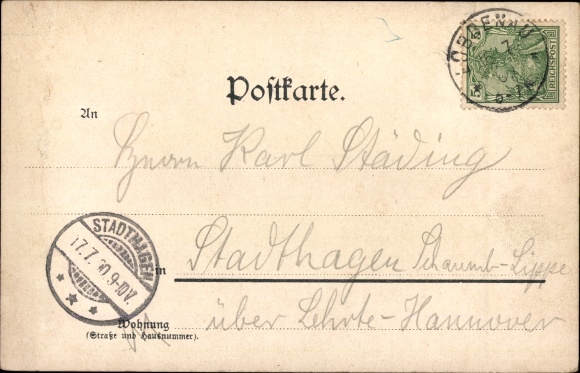 REICHSPOST
Postkarte.
An
Herrn Karl Städing
STADTHAGEN
17.7.00.9-10V.
in Stadthagen Schaumb-Lippe
über Lehrte-Hannover
Wohnung
(Straße und Hausnummer).